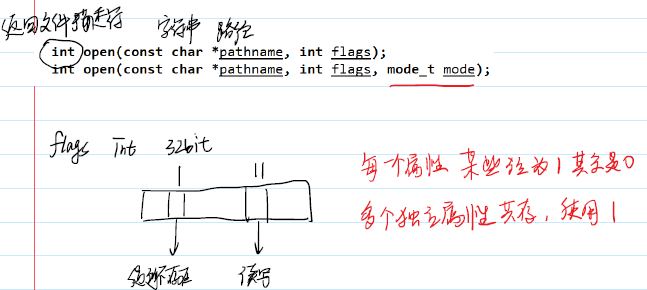 返回文件描述符 字符串 路径
int open(const char *pathname, int flags);
int open(const char *pathname, int flags, mode_t mode);
flags int 32bit
每一个属性 某些位为1 其余是0
多个独立属性共存，使用 |
1 11
读写